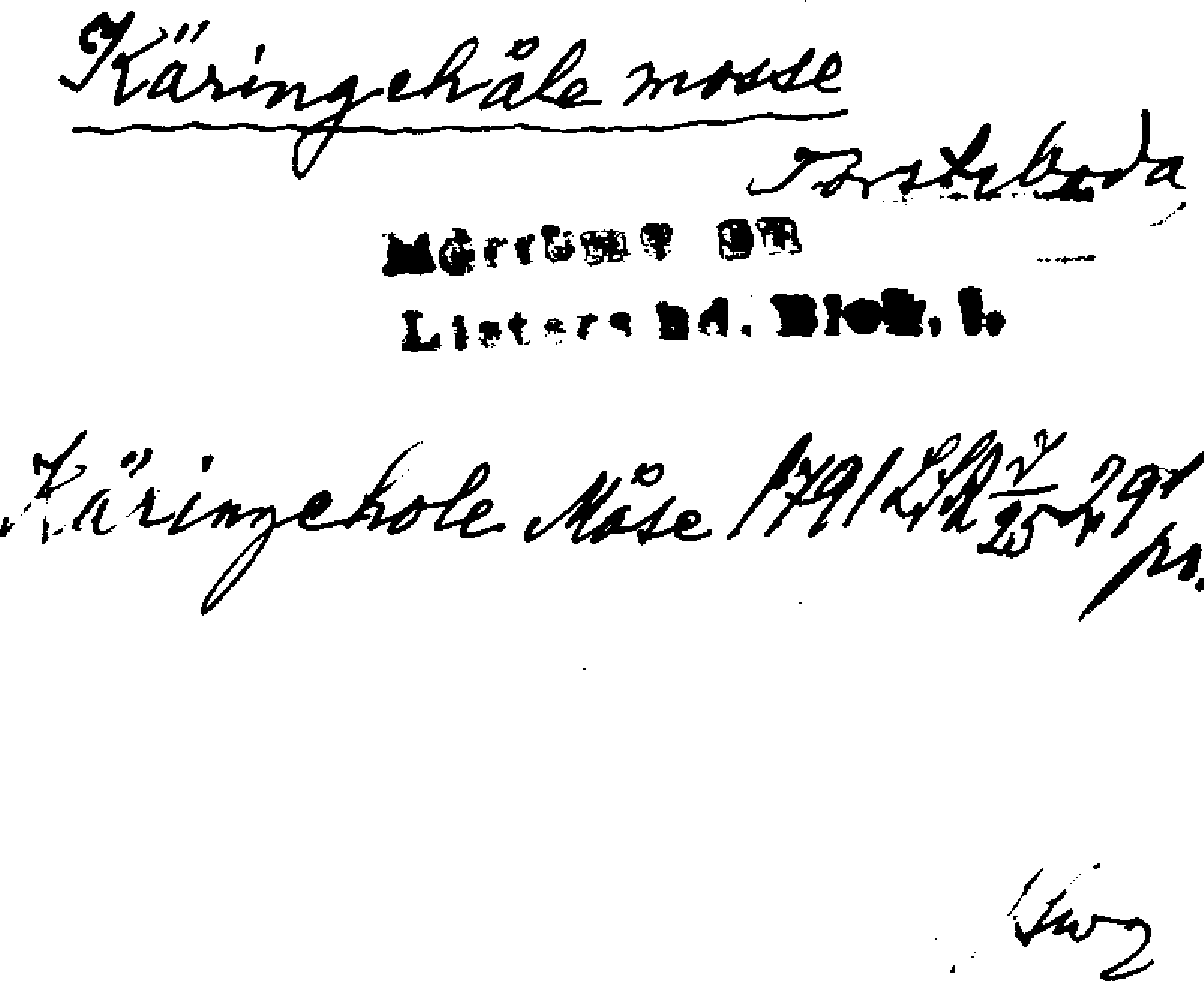 Käringehåle mosse
Torsteboda,
Mörrums sn
Listers hd. Blek. l.
Käringehole Måse 1791 LSA 29